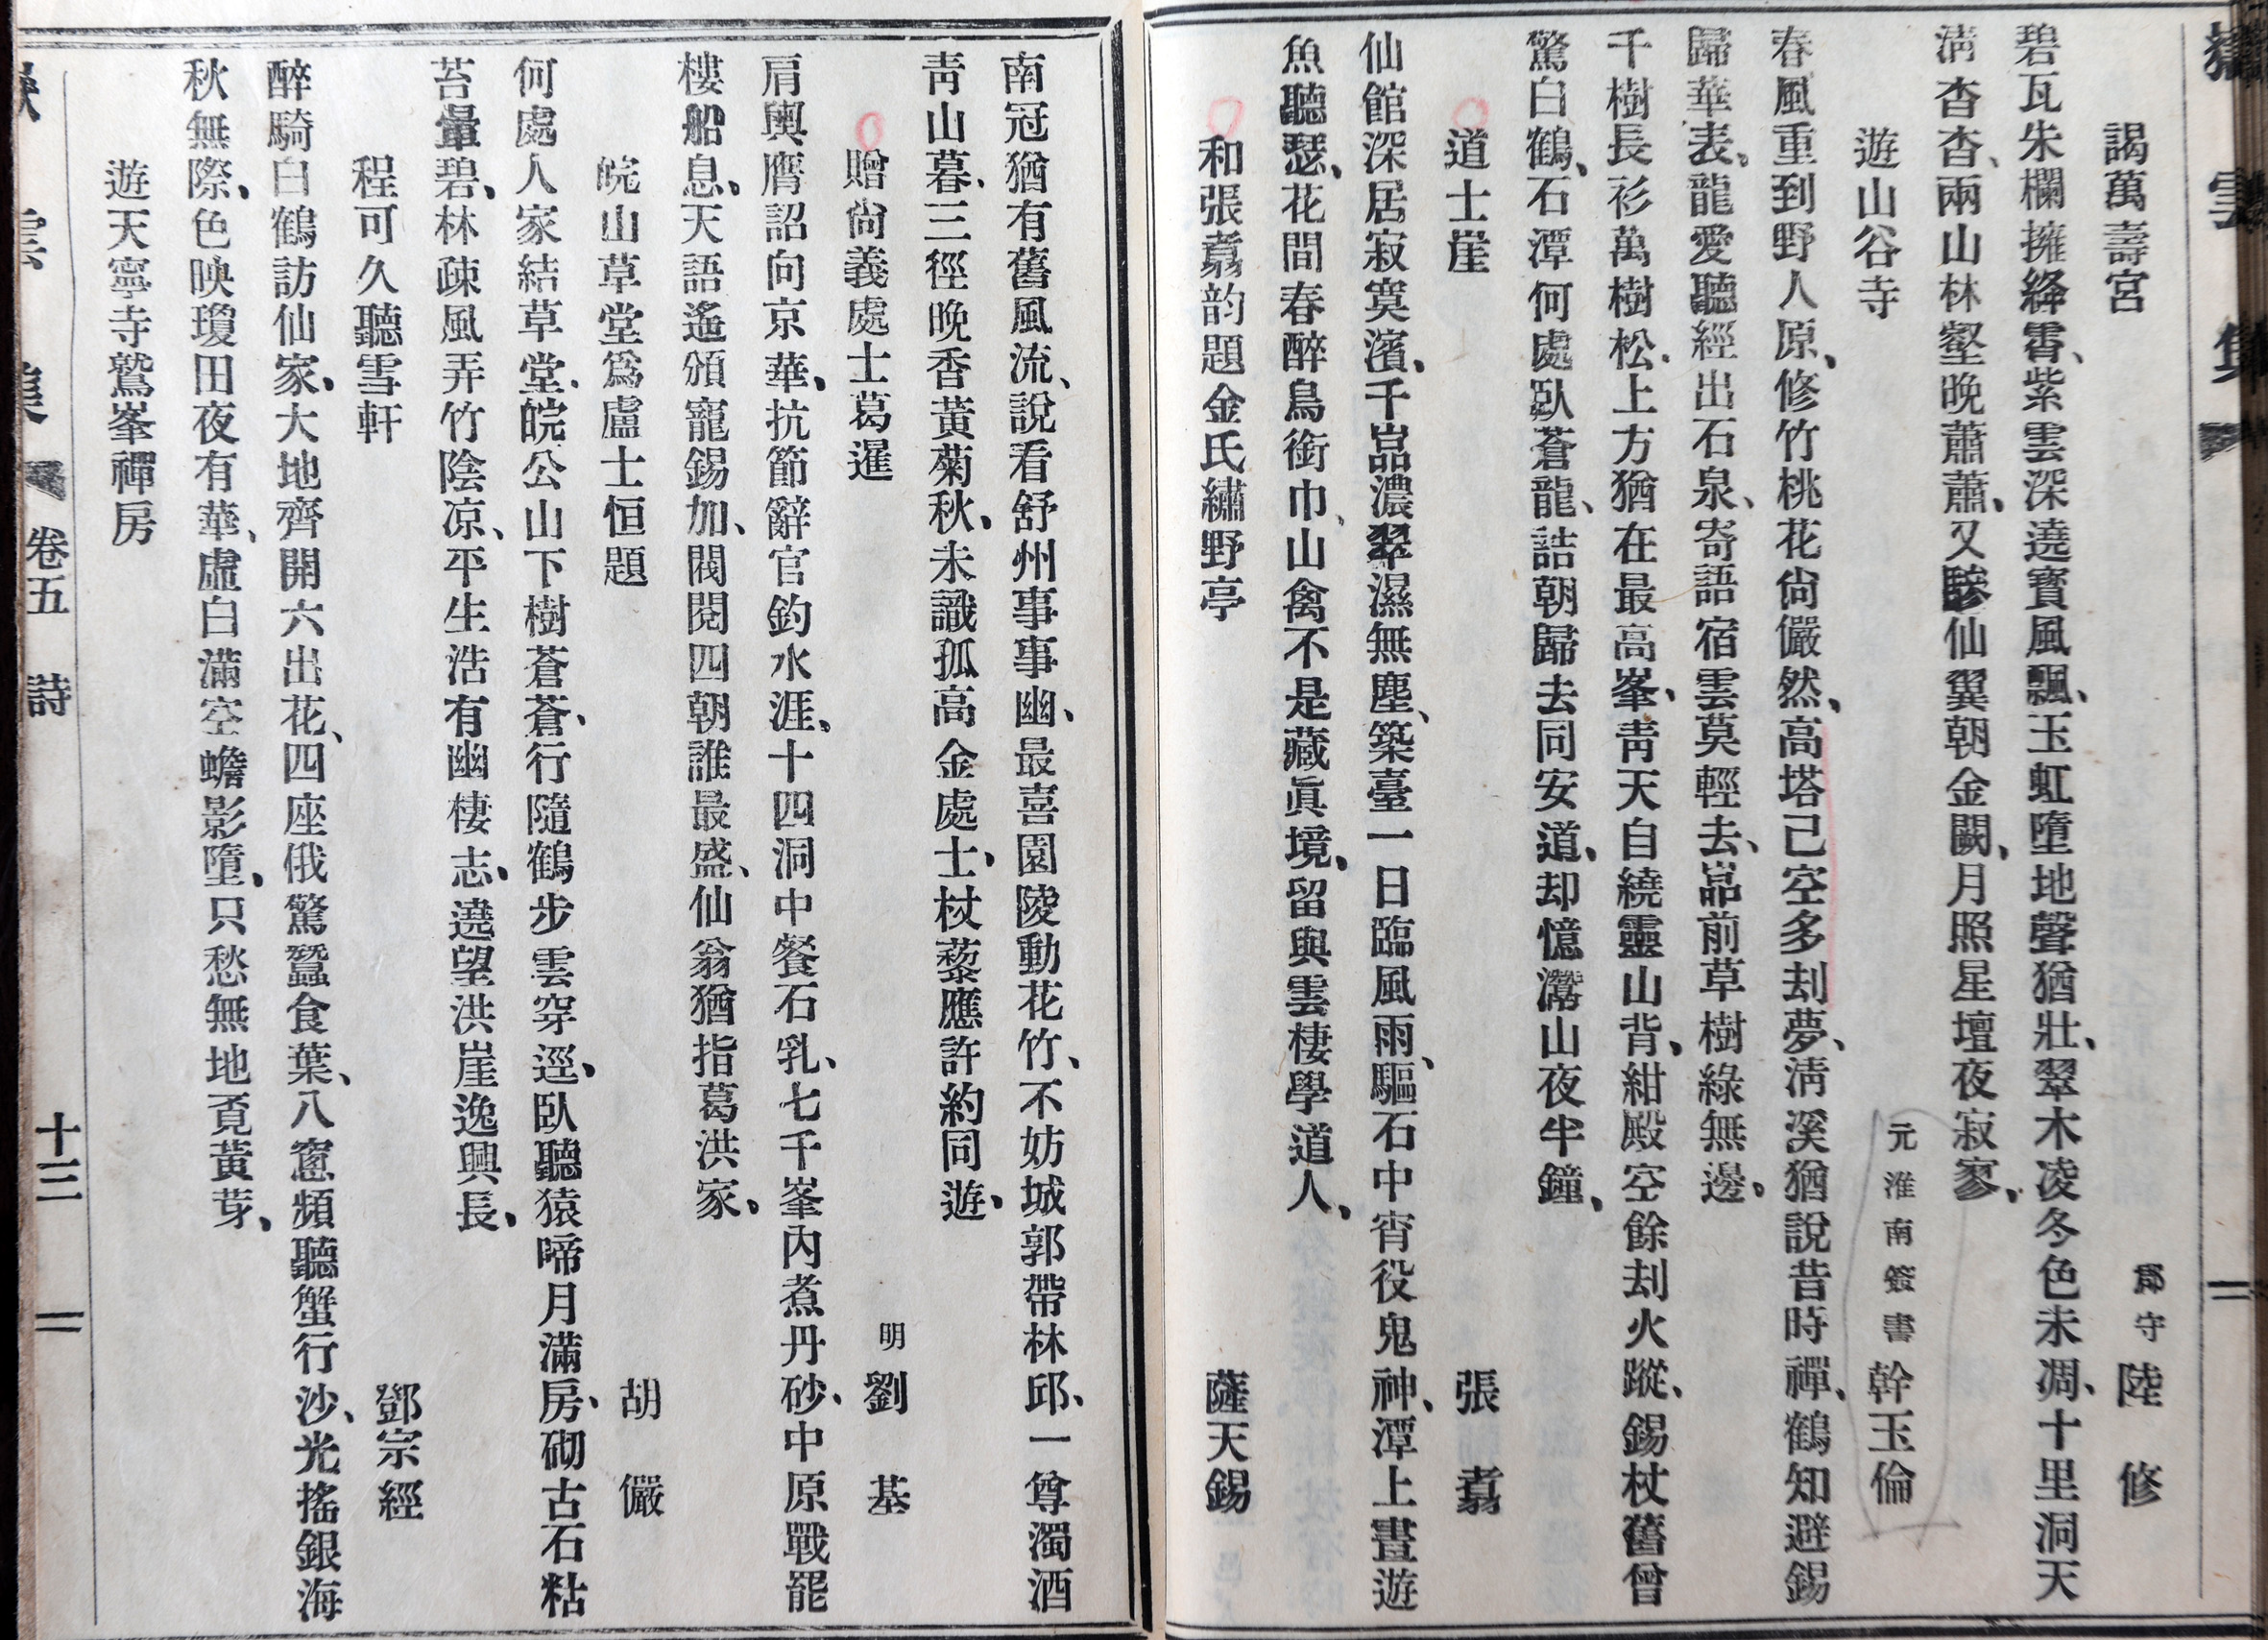 謁萬壽宮 郡守 陸修
碧瓦朱欄擁絳霄、紫雲深遶寶風飄、玉虹墮地聲猶壯、翠木凌冬色未凋、十里洞天
淸杳杳、兩山林壑晚蕭蕭、又驂仙翼朝金闕、月照星壇夜寂寥、
遊山谷寺 元淮南簽書 幹玉倫
春風重到野人原、修竹桃花尙儼然、高塔己空多刦夢、淸溪猶說昔時禪、鶴知避錫
歸華表、龍愛聽經出石泉、寄語宿雲莫輕去、嵓前草樹綠無邊、
千樹長衫萬樹松、上方猶在最高峯、靑天自繞靈山背、紺殿空餘刦火蹤、錫杖舊曾
驚白鶴、石潭何處臥蒼龍、詰朝歸去同安道、却憶灊山夜半鐘、
道士崖 張翥
仙館深居寂寞濱、千嵓濃翠濕無塵、築臺一日臨風雨、驅石中宵役鬼神、潭上晝遊
魚聽瑟、花間春醉鳥銜巾、山禽不是藏眞境、留與雲棲學道人、
和張翥韵題金氏繡野亭 薩天錫
南冠猶有舊風流、說看舒州事事幽、最喜園陵動花竹、不妨城郭帶林邱、一尊濁酒
靑山暮、三徑晚香黃菊秋、未識孤高金處士、杖藜應許約同遊、
贈尙義處士葛暹 明 劉基
肩輿膺詔向京華、抗節辭官釣水涯、十四洞中餐石乳、七千峯內煮丹砂、中原戰罷
樓船息、天語遙頒寵錫加、閥閱四朝誰最盛、仙翁猶指葛洪家、
皖山草堂爲盧士恒題 胡儼
何處人家結草堂、皖公山下樹蒼蒼、行隨鶴步雲穿逕、臥聽猿啼月滿房、砌古石粘
苔暈碧、林疎風弄竹陰凉、平生浩有幽棲志、遶望洪崖逸興長、
程可久聽雪軒 鄧宗經
醉騎白鶴訪仙家、大地齊開六出花、四座俄驚蠶食葉、八窻頻聽蟹行沙、光搖銀海
秋無際、色映瓊田夜有華、虛白滿空蟾影墮、只愁無地覔黃芽、
遊天寧寺鷲峯禪房
卷五 詩 十三